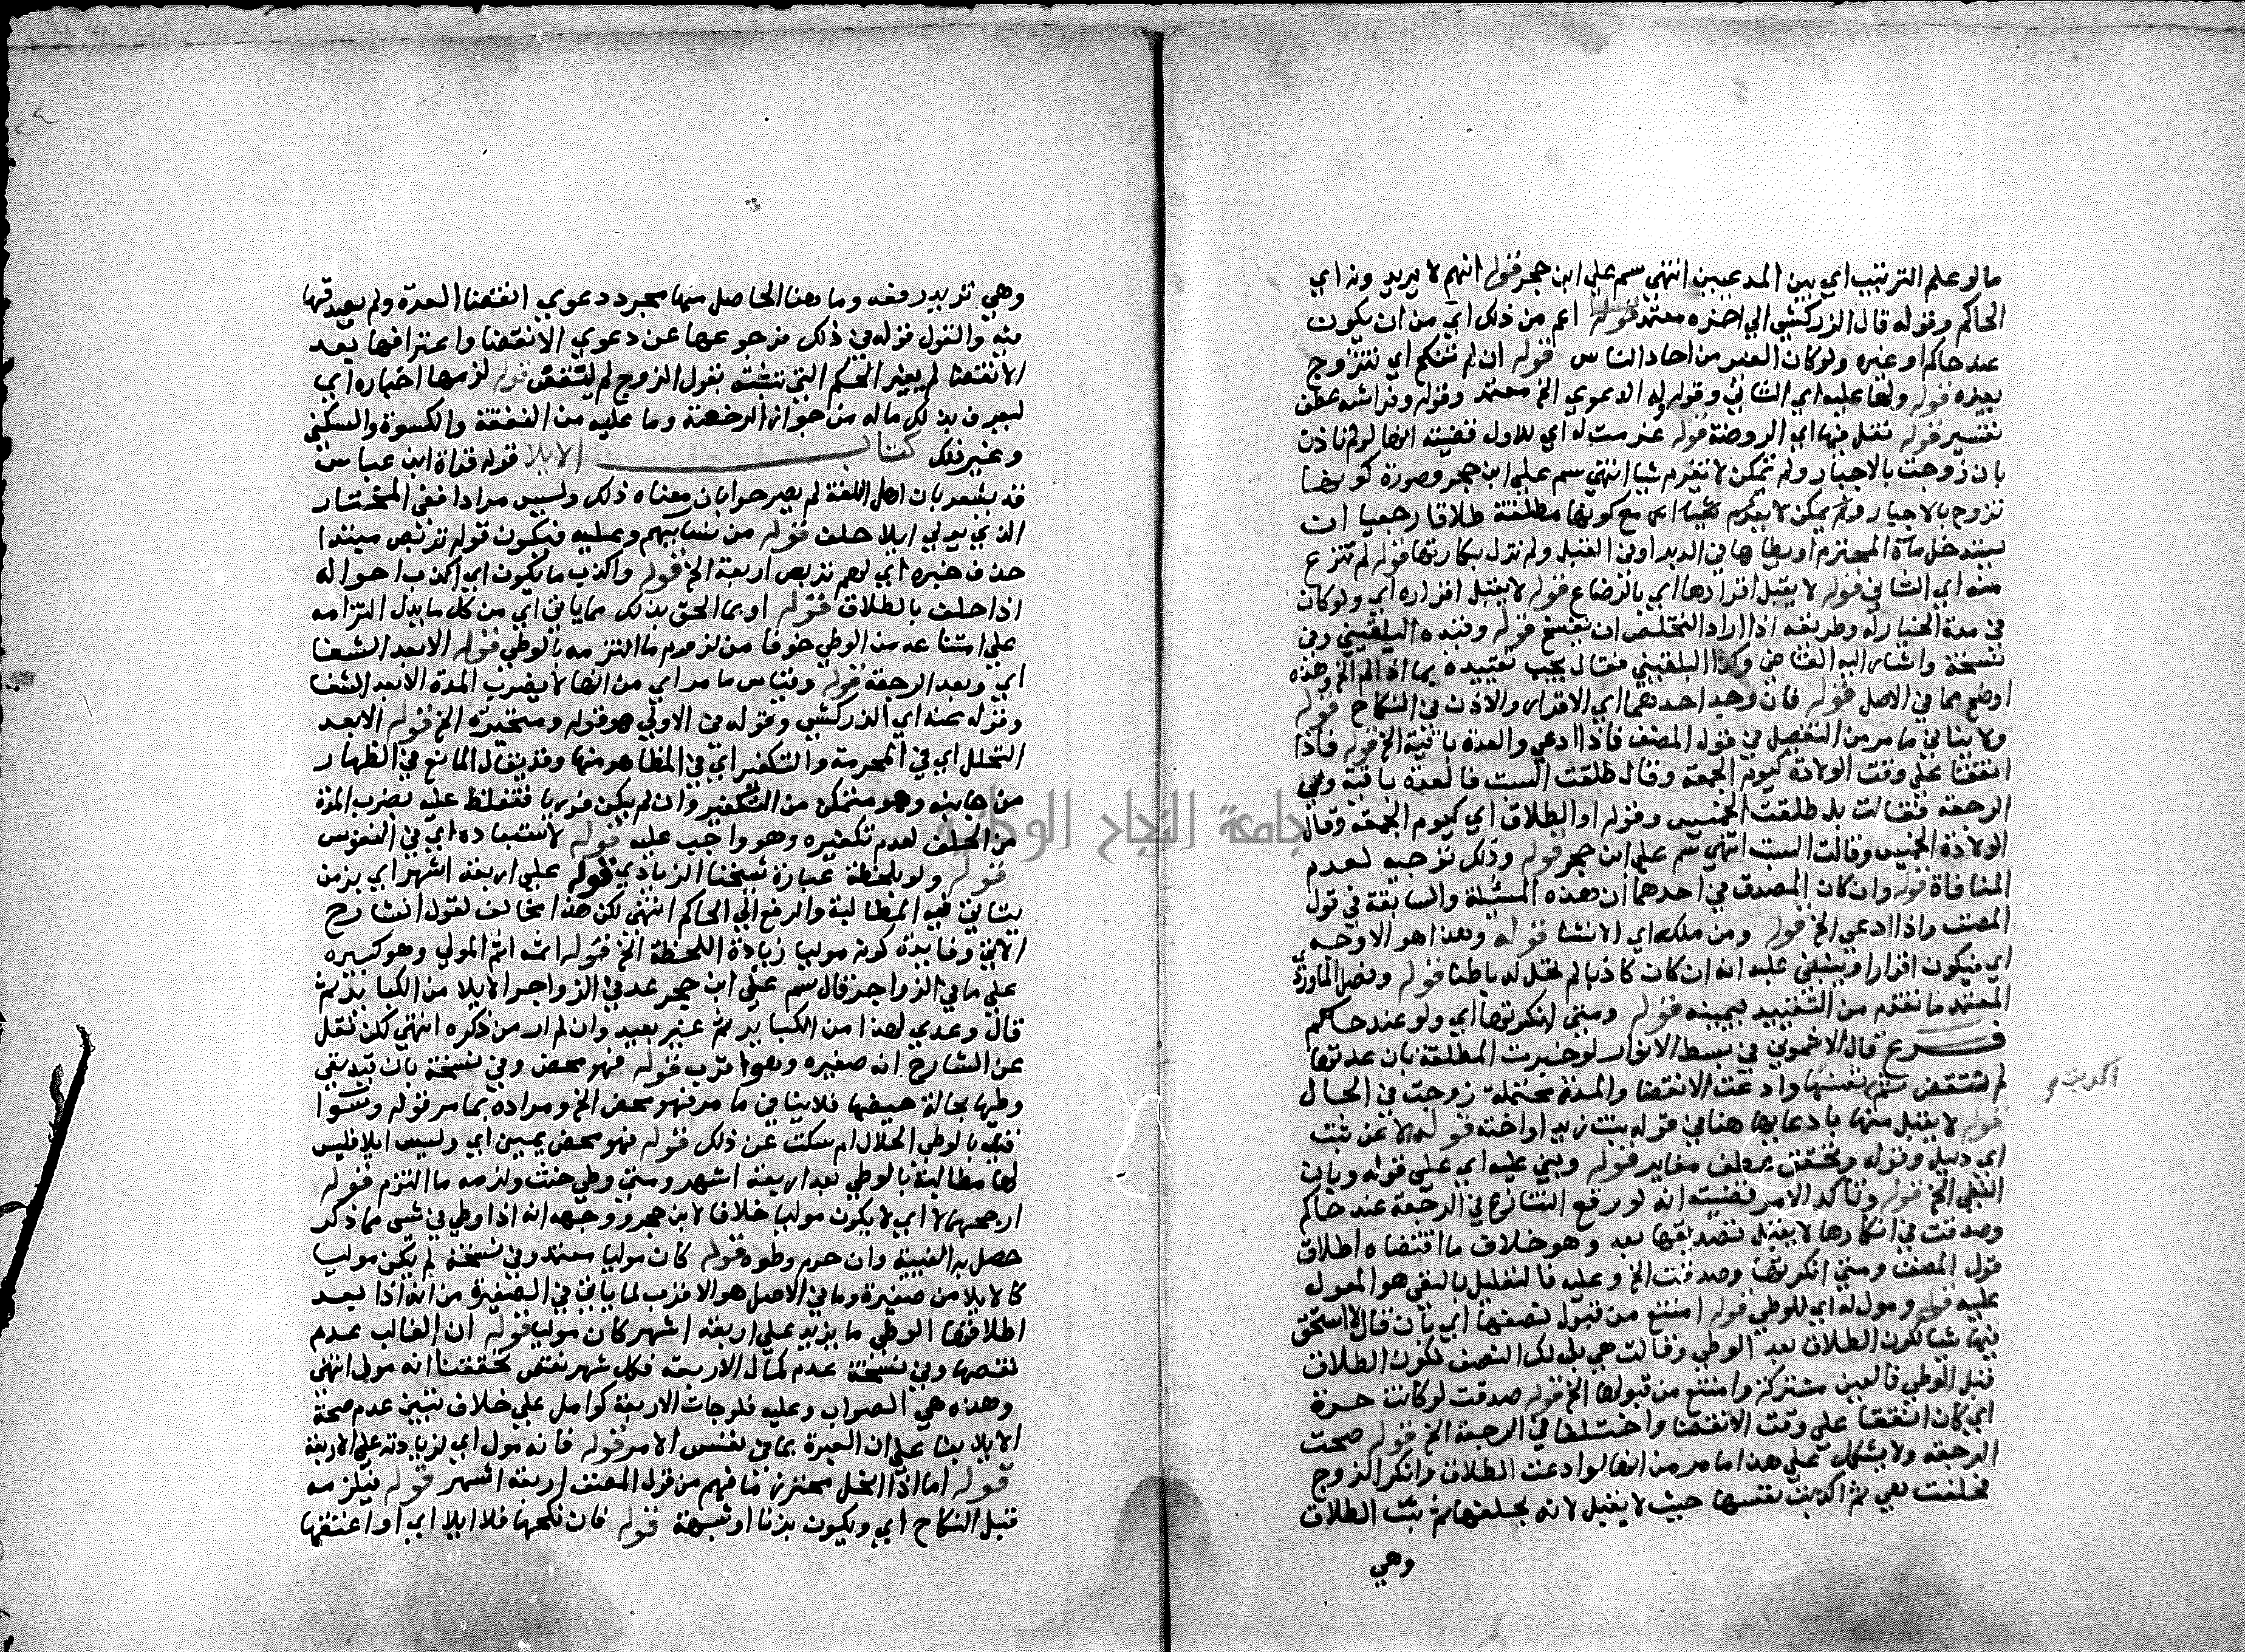 ما لو علم الترتيب اي بين المدعيين انتهى سم على ابن حجر قوله انهم لا يريدونه اي
الحاكم وقوله قال الزركشي الى اخره معتمد قوله اعم من ذلك اي من ان يكون
عند حاكم او غيره ولو كان الغير من احاد الناس قوله ان لم تنكح اي تتزوج
بغيره قوله ولها عليه اي الثاني وقوله وله الدعوى الخ معتمد وقوله وفراشه عطف
تفسير قوله نقل فيها اي الروضة قوله غرمت له اي للاول قضيته انها لو لم تاذن
بان زوجت بالاجبار ولم تمكن لا تغرم شيا انتهى سم على ابن حجر وصورة كونها
تزوج بالاجبار ولم تمكن لا تغرم شيا اي مع كونها مطلقة طلاقا رجعيا ان
يستدخل ماه المحترم او يطاها في الدبر او في القبل ولم تزل بكارتها قوله لم تنزع
منه اي الثاني قوله لا يقبل اقرارها اي بالرضاع قوله لا يقبل اقراره اي ولو كان
في مدة الخيار له وطريقه اذا اراد التخلص ان يفسخ قوله وقيده البلقيني وفي
نسخة واشار اليه القاضي وكذا البلقيني فقال يجب تقييده بما اذا لم الخ وهذه
اوضح مما في الاصل قوله فان وجد احدهما اي الاقرار والاذن في النكاح قوله
ولا ينافي ما مر من التفصيل في قول المصنف فاذا ادعى والعدة باقية الخ قوله فاذا
اتفقا على وقت الولادة كيوم الجمعة وقال طلقت السبت فالعدة باقية ولي
الرجعة فقالت بل طلقت الخميس وقوله او الطلاق اي كيوم الجمعة وقال
الولادة الخميس وقالت السبت انتهى سم على ابن حجر قوله وذلك توجيه لعدم
المنافاة قوله وان كان المصدق في احدهما ان هذه المسئلة والسابقة في قول
المصنف واذا ادعى الخ قوله ومن ملكه اي الانشا قوله وهذا هو الاوجه
اي فيكون اقرارا وينبغي عليه انه ان كان كاذبا لم تحل له باطنا قوله ونص الماوردي
المعتمد ما تقدم من التقييد بيمينه قوله ومتى انكرتها اي ولو عند حاكم
فرع قال الاشموني في بسط الانوار لو خبرت المطلقة بان عدتها
لم تنقض ثم نفسها وادعت الانقضا والمدة محتملة زوجت في الحال
اكذبت
قوله لا يقبل منها بادعايها هنا في قوله بنت زيد او اخته قوله الا عن ثبت
اي دليل وقوله وتحقق عطف مغاير قوله وبني عليه اي على قوله وبان
النفي الخ قوله وتاكد الامر قضيته انه لو رفع التنازع في الرجعة عند حاكم
وصدقت في انكارها لا يقبل تصديقها بعد وهو خلاف ما اقتضاه اطلاق
قول المصنف ومتى انكرتها وصدقت الخ وعليه فالتعليل بالنفي هو المعول
عليه قوله ومول له اي للوطي قوله امتنع من قبول نصفها اي بان قال لا استحق
فيها شيا لكون الطلاق بعد الوطي وقالت هي بل لك النصف لكون الطلاق
قبل الوطي فالعين مشتركة وامتنع من قبولها الخ قوله صدقت لو كانت حرة
اي كان اتفقا على وقت الانقضا واختلفا في الرجعة الخ قوله صحت
الرجعة ولا يشكل على هذا ما مر من انها لو ادعت الطلاق وانكر الزوج
فحلفت هي ثم اكذبت نفسها حيث لا يقبل لانه بحلفها ثم ثبت الطلاق
وهي
وهي تريد رفعه وما هنا الحاصل منها مجرد دعوى انقضا العدة ولم يصدقها
فيه والقول قوله في ذلك فرجوعها عن دعوى الانقضا واعترافها بعدم
الانقضا لم يغير الحكم التي تثبته بقول الزوج لم تنقض قوله لزمها اخباره اي
ليعرف بذلك ماله من جواز الرجعة وما عليه من النفقة والكسوة والسكنى
وغير ذلك كتاب الايلا قوله قراة ابن عباس
قد يشعر بان اهل اللغة لم يصرحوا بان معناه ذلك وليس مرادا ففي المختار
الذي يولي ايلا حلف قوله من نسايهم وعليه فيكون قوله تربص مبتدا
حذف خبره اي لهم تربص اربعة الخ قوله واكذب ما يكون اي اكذب احواله
اذا حلف بالطلاق قوله او بما الحق بذلك مما ياتي اي من كل ما يدل التزامه
على امتناعه من الوطي خوفا من لزوم ما التزمه بالوطي قوله الا بعد الشفا
اي وبعد الرجعة قوله وقياس ما مر اي من انها لا يضرب المدة الا بعد الشفا
وقوله عنه اي الزركشي وقوله في الاولى هو قوله ومتحيرة الخ قوله الا بعد
التحلل اي في المحرمة والتكفير اي في المظاهر منها وقد يقال المانع في الظهار
من جانبه وهو متمكن من التكفير وان لم يكن فوريا فتغلظ عليه بضرب المدة
من الحلف لعدم تكفيره وهو واجب عليه قوله لاستبعاده اي في النفوس
قوله ولو بلحظة عبارة شيخنا الزيادي قوله على اربعة اشهر اي بزمن
يتاتى فيه المطالبة والرفع الى الحاكم انتهى لكن هذا مخالف لقول الشارح
الاتي وفايدة كونه موليا زيادة اللحظة الخ قوله اثمه اثم المولي وهو كبيرة
على ما في الزواجر قال سم على ابن حجر عد في الزواجر الايلا من الكباير ثم
قال وعدي لهذا من الكباير ثم غير بعيد وان لم ار من ذكره انتهى لكن نقل
عن الشارح انه صغيره وهو اقرب قوله فهو محض وفي نسخة بان قيد نفي
وطيها بحالة حيضها فلا ينافي ما مر فهو محض الخ ومراده بما مر قوله وسوا
قيد بالوطي الحلال ام سكت عن ذلك قوله فهو محض يمين اي وليس ايلا فليس
لها مطالبة بالوطي بعد اربعة اشهر ومتى وطي حنث ولزمه ما التزم قوله
ارجحهما لا اي لا يكون موليا خلافا لابن حجر ووجهه انه اذا وطي في شي مما ذكر
حصل به الفيية وان حرم وطوه قوله كان موليا معتمد وفي نسخة لم يكن موليا
كالايلا من صغيرة وما في الاصل هو الاقرب لما ياتي في الصغيرة من انه اذا بعد
اطاقتها الوطي ما يزيد على اربعة اشهر كان موليا قوله ان الغالب عدم
نقصها وفي نسخة عدم كمال الاربعة فكل شهر نقص تحققنا انه مول انتهى
وهذه هي الصواب وعليه فلو جات الاربعة كوامل على خلاف تبين عدم صحة
الايلا بنا على ان العبرة بما في نفس الامر قوله فانه مول اي لزيادته على الاربعة
قوله اما اذا انحل محترز ما فهم من قول المصنف اربعة اشهر قوله فيلزمه
قبل النكاح اي ويكون بزنا او شبهة قوله فان نكحها فلا ايلا اي او اعتقها